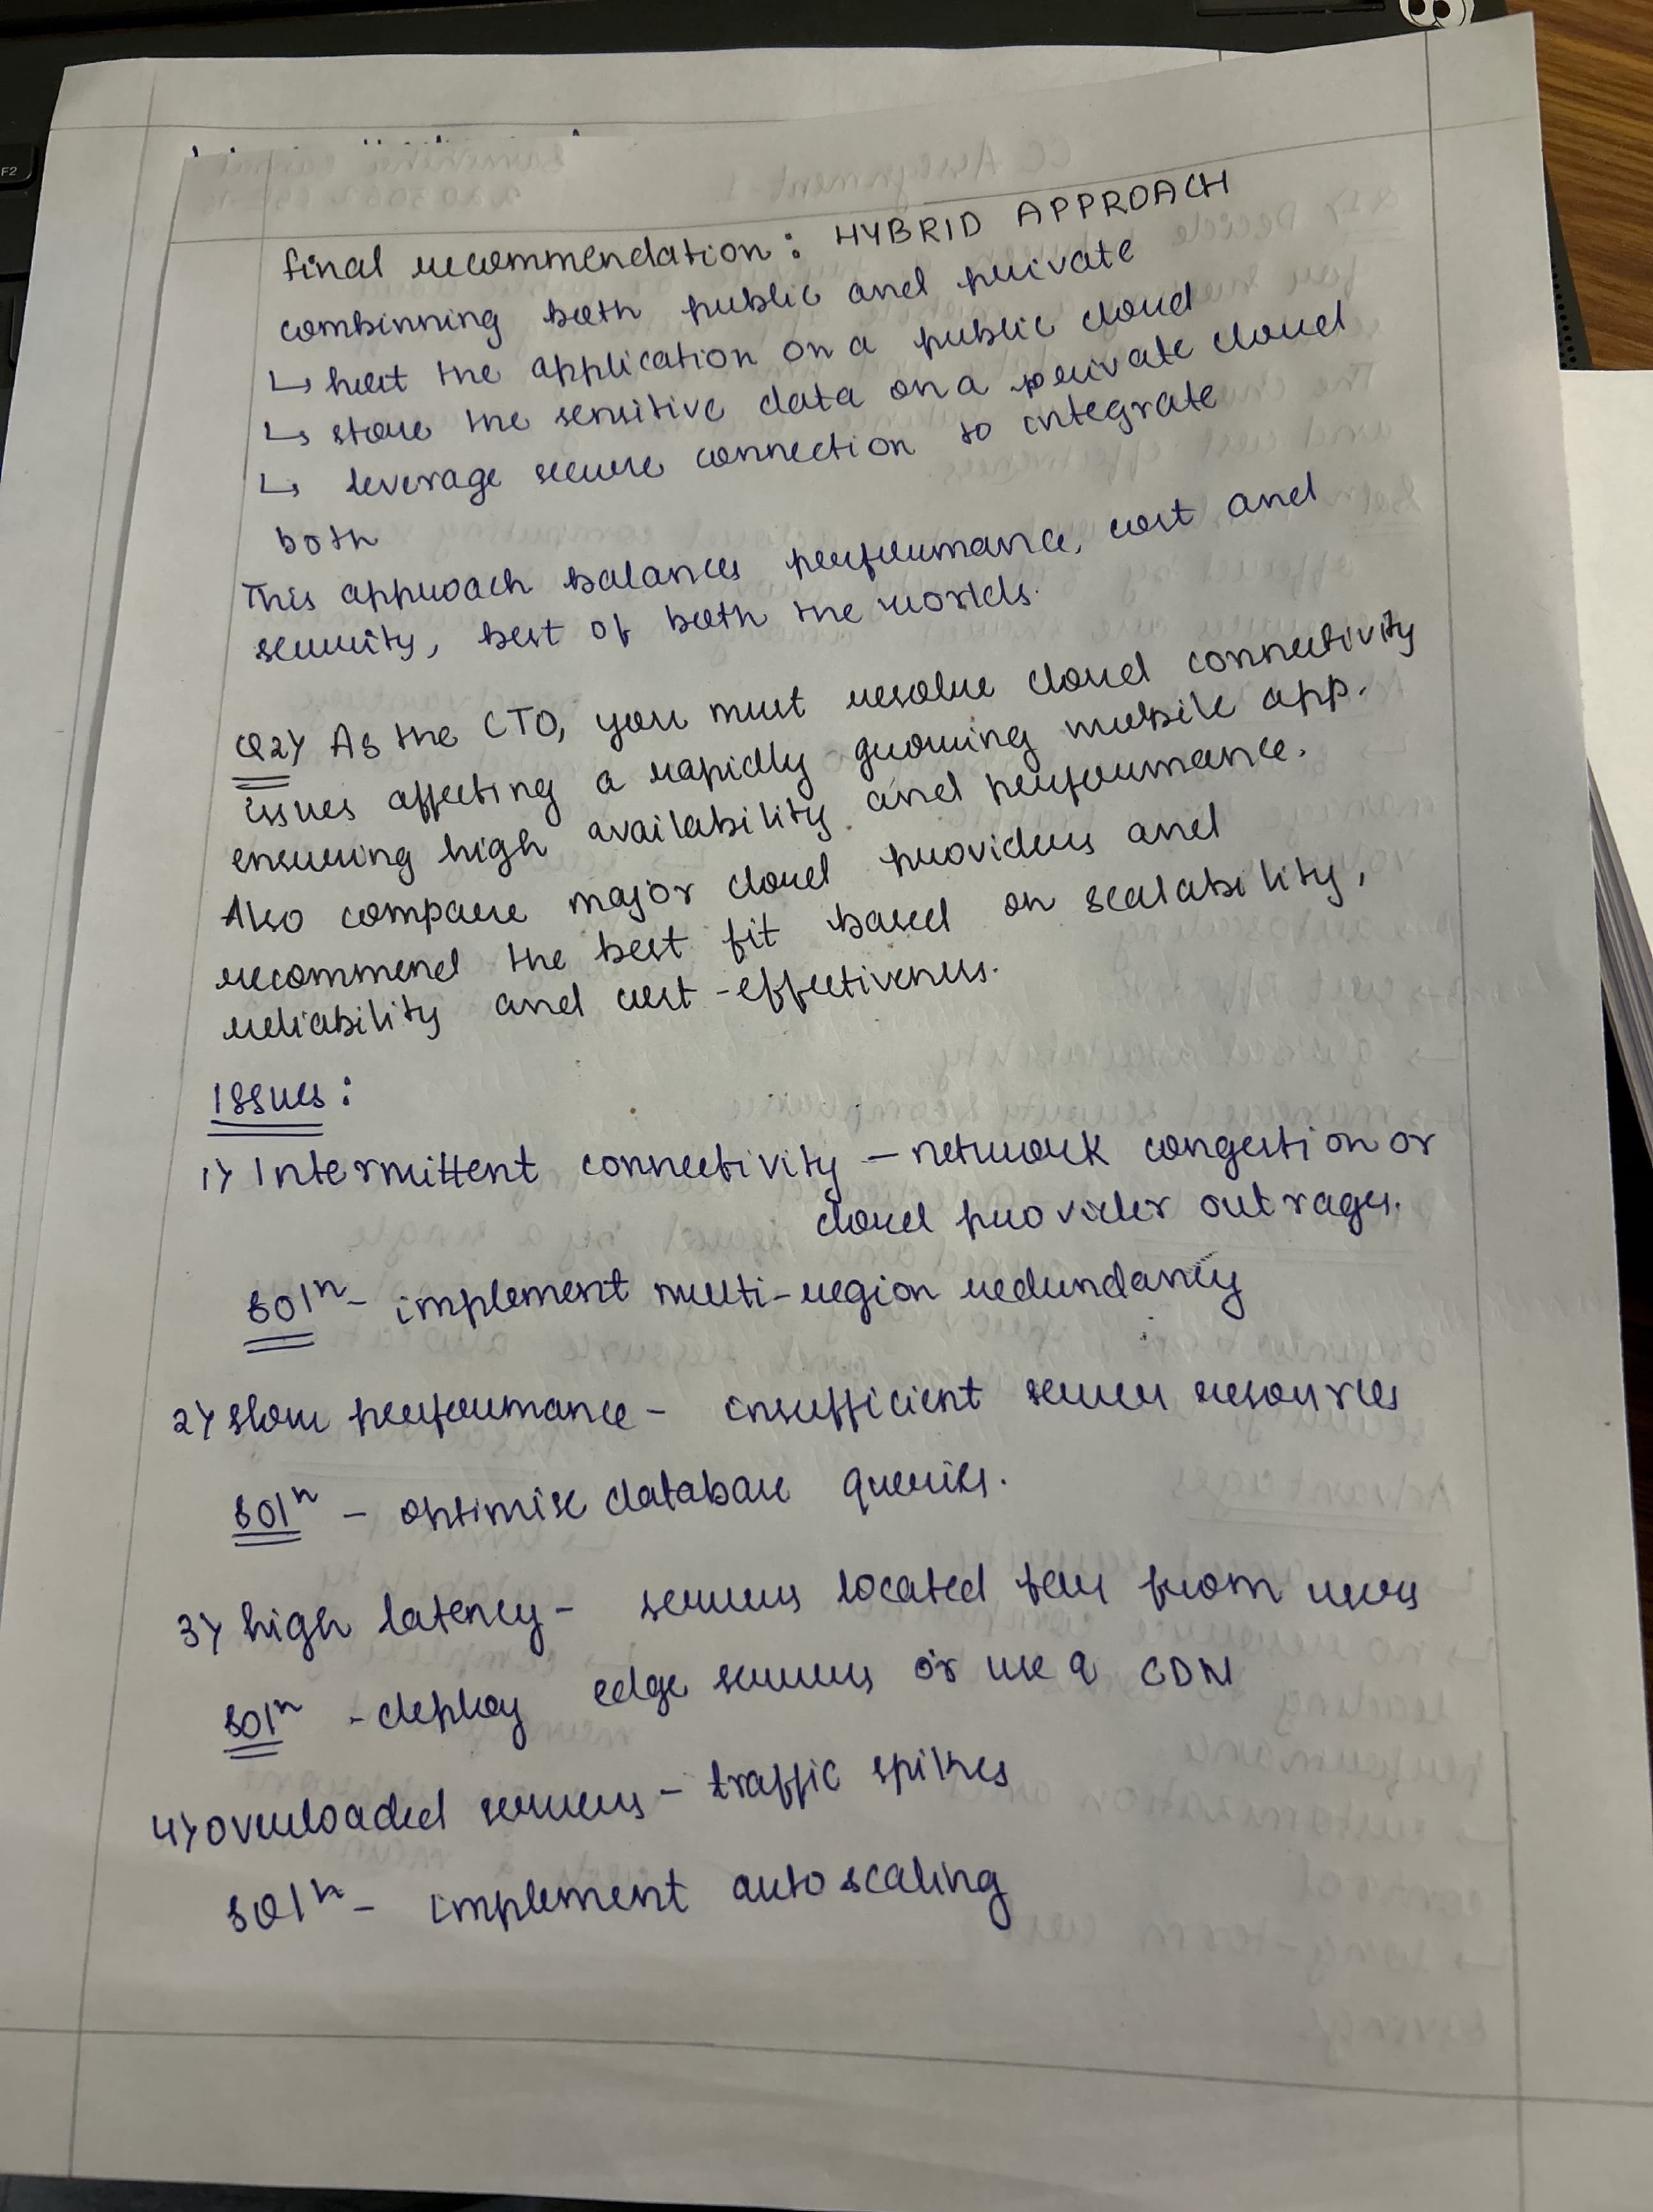 final recommendation: HYBRID APPROACH
combinning both public and private
↳ host the application on a public cloud
↳ store the sensitive data on a private cloud
↳ leverage secure connection to integrate
both
This approach balances performance, cost and
security, best of both the worlds.
Q2) As the CTO, you must resolve cloud connectivity
issues affecting a rapidly growing mobile app.
ensuring high availability and performance.
Also compare major cloud providers and
recommend the best fit based on scalability,
reliability and cost-effectiveness.
Issues:
1) Intermittent connectivity – network congestion or
cloud provider outrages.
Solⁿ – implement multi-region redundancy
2) slow performance – insufficient server resources
Solⁿ – optimise database queries.
3) high latency – servers located far from users
Solⁿ – deploy edge servers or use a CDN
4) overloaded servers – traffic spikes
Solⁿ – implement auto scaling
F2